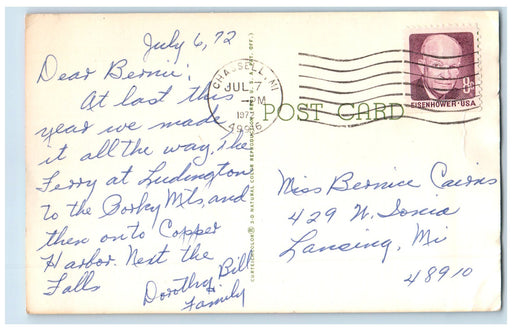 July 6, 72
Dear Bernie:
At last this
year we made
it all the way. The
Ferry at Ludington
to the Porky Mts, and
then on to Copper
Harbor. Next the
Falls
Dorothy Bill
+ Family
CHASSELL, MI
JUL 7
PM
1972
49916
POST CARD
8c
EISENHOWER·USA
Miss Bernice Cairns
429 N. Ionia
Lansing, Mi
48910